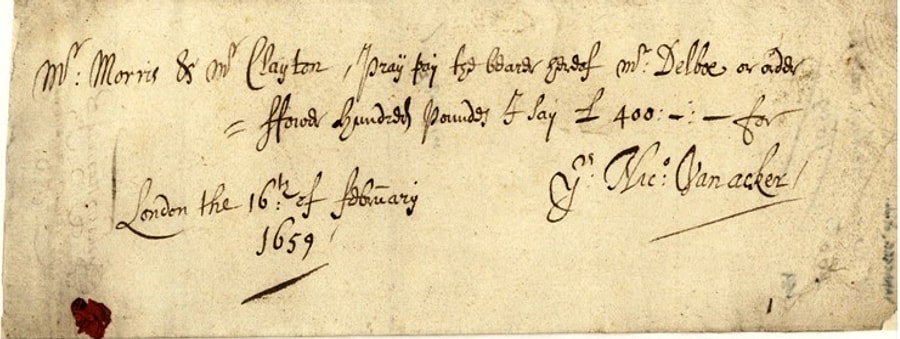 Mr: Morris & Mr Clayton, Pray pay the bearer hereof Mr: Delboe or order
= ffower hundred Poundes I say £ 400: —: — for
Yrs Nico: Vanacker /
London the 16th: of february
1659 /